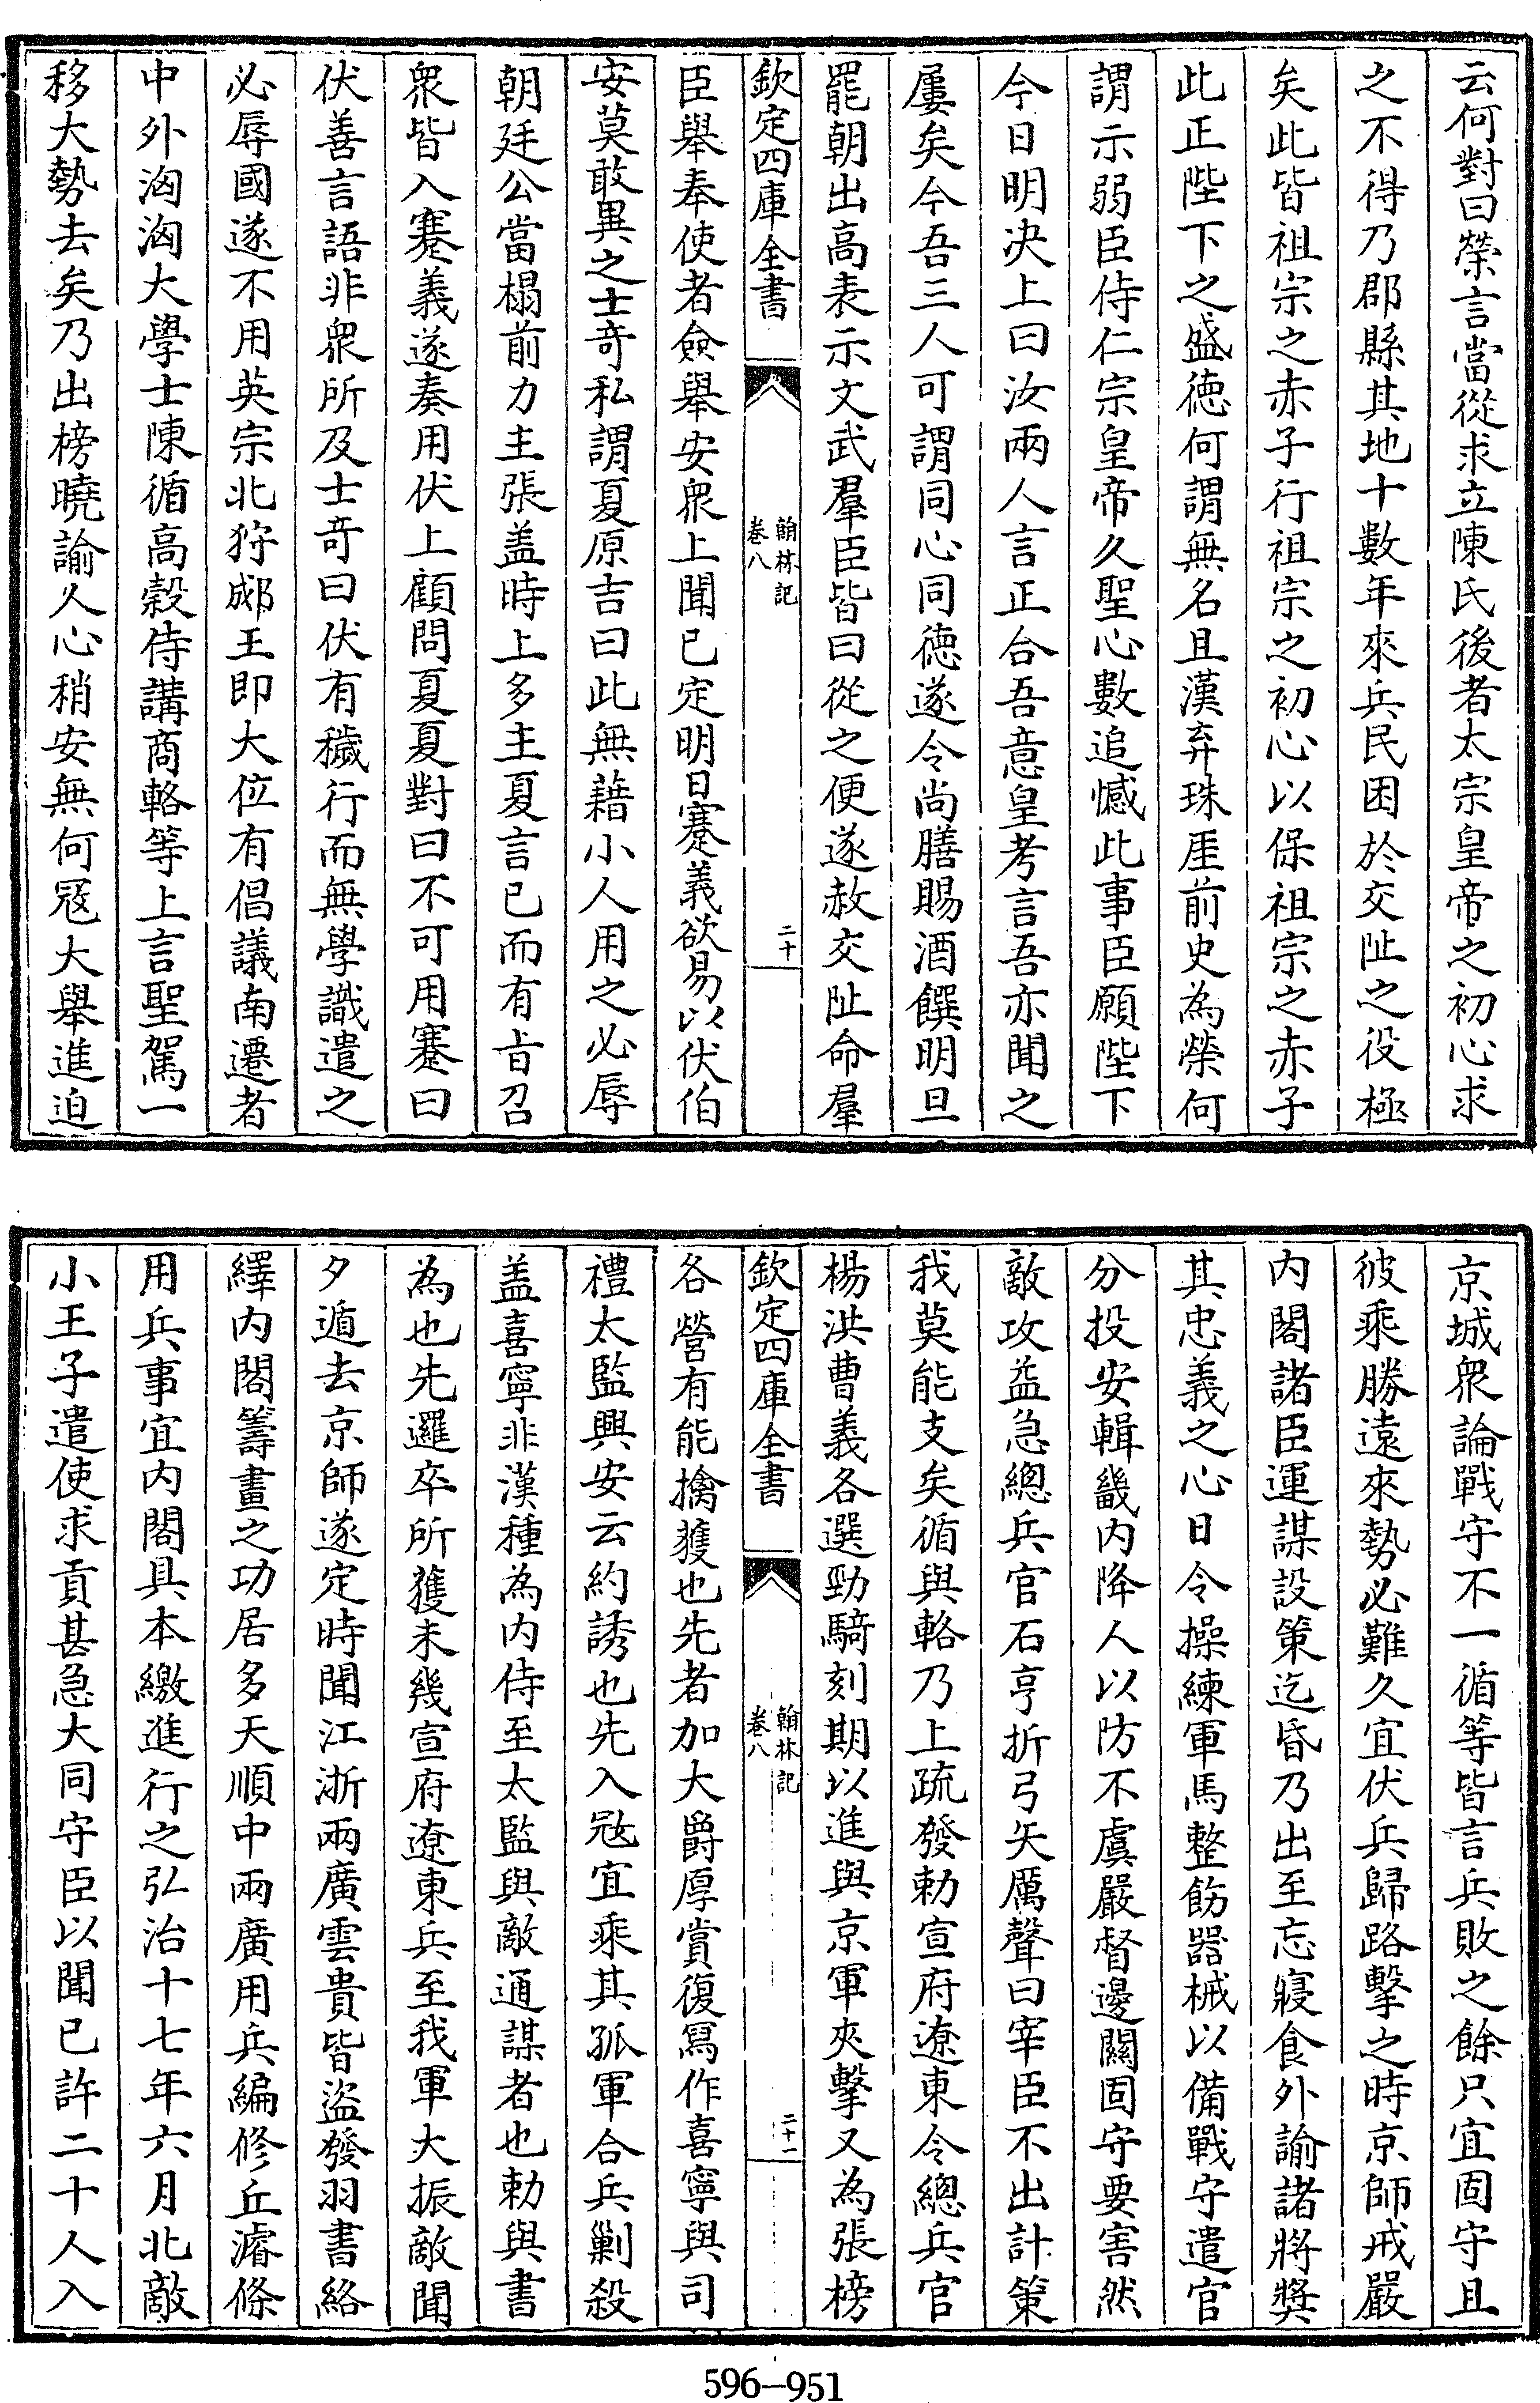 云何對曰榮言當從求立陳氏後者太宗皇帝之初心求
之不得乃郡縣其地十數年來兵民困於交阯之役極
矣此皆祖宗之赤子行祖宗之初心以保祖宗之赤子
此正陛下之盛徳何謂無名且漢弃珠厓前史為榮何
謂示弱臣侍仁宗皇帝久聖心數追憾此事臣願陛下
今日明决上曰汝兩人言正合吾意皇考言吾亦聞之
屢矣今吾三人可謂同心同徳遂令尚膳賜酒饌明旦
罷朝出高表示文武羣臣皆曰從之便遂赦交阯命羣
欽定四庫全書
翰林記
卷八
二十
臣舉奉使者僉舉安衆上聞已定明日蹇義欲易以伏伯
安莫敢異之士竒私謂夏原吉曰此無藉小人用之必辱
朝廷公當榻前力主張盖時上多主夏言已而有㫖召
衆皆入蹇義遂奏用伏上顧問夏夏對曰不可用蹇曰
伏善言語非衆所及士竒曰伏有穢行而無學識遣之
必辱國遂不用英宗北狩郕王即大位有倡議南遷者
中外洶洶大學士陳循高穀侍講商輅等上言聖駕一
移大勢去矣乃出榜曉諭人心稍安無何冦大舉進迫
京城衆論戰守不一循等皆言兵敗之餘只宜固守且
彼乘勝遠來勢必難久宜伏兵歸路擊之時京師戒嚴
内閣諸臣運謀設策迄昏乃出至忘寢食外諭諸將奬
其忠義之心日令操練軍馬整飭器械以備戰守遣官
分投安輯畿内降人以防不虞嚴督邊關固守要害然
敵攻益急總兵官石亨折弓矢厲聲曰宰臣不出計策
我莫能支矣循與輅乃上疏發勅宣府遼東令總兵官
楊洪曹義各選勁騎刻期以進與京軍夾擊又為張榜
欽定四庫全書
翰林記
卷八
二十一
各營有能擒獲也先者加大爵厚賞復寫作喜寧與司
禮太監興安云約誘也先入冦宜乘其孤軍合兵剿殺
盖喜寧非漢種為内侍至太監與敵通謀者也勅與書
為也先邏卒所獲未幾宣府遼東兵至我軍大振敵聞
夕遁去京師遂定時聞江浙兩廣雲貴皆盜發羽書絡
繹内閣籌畫之功居多天順中兩廣用兵編修丘濬條
用兵事宜内閣具本繳進行之弘治十七年六月北敵
小王子遣使求貢甚急大同守臣以聞已許二十人入
596-951